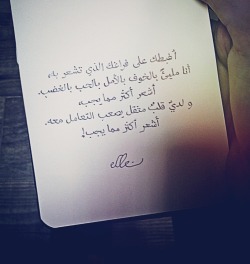 أضبطك على فراغك الذي تشعر به،
أنا مليئٌ بالخوف بالأمل بالحب بالغضب.
أشعر أكثر مما يجب،
و لديّ قلبٌ مثقل يصعب التعامل معه.
أشعر أكثر مما يجب!